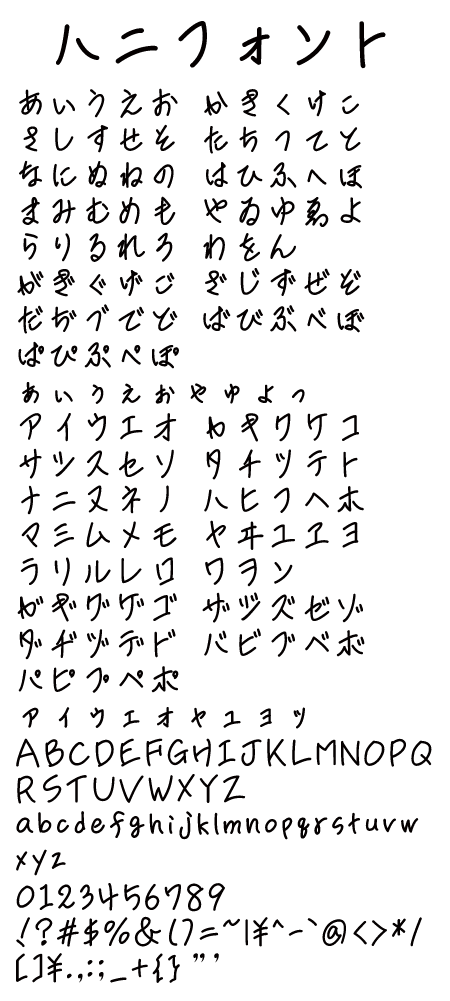 ハニフォント
あいうえお かきくけこ
さしすせそ たちつてと
なにぬねの はひふへほ
まみむめも やゐゆゑよ
らりるれろ わをん
がぎぐげご ざじずぜぞ
だぢづでど ばびぶべぼ
ぱぴぷぺぽ
ぁぃぅぇぉゃゅょっ
アイウエオ カキクケコ
サシスセソ タチツテト
ナニヌネノ ハヒフヘホ
マミムメモ ヤヰユヱヨ
ラリルレロ ワヲン
ガギグゲゴ ザジズゼゾ
ダヂヅデド バビブベボ
パピプペポ
ァィゥェォャュョッ
ABCDEFGHIJKLMNOPQ
RSTUVWXYZ
abcdefghijklmnopqrstuvw
xyz
0123456789
!?#$%&()=~|¥^-`@<>*/
[]¥.,:;_+{}”’